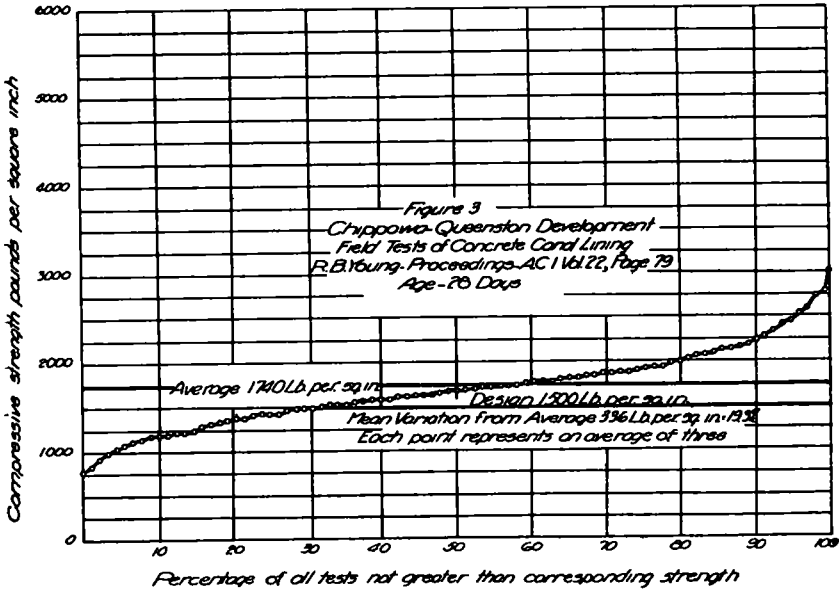 6000
5000
4000
3000
2000
1000
0
Compressive strength pounds per square inch
Figure 3
Chippowa-Queenston Development
Field Tests of Concrete Canal Lining
R.B.Young-Proceedings-ACI Vol.22, Page 79
Age-28 Days
Average 1740 Lb. per. sq. in.
Design 1500 Lb. per sq. in.
Mean Variation from Average 336 Lb. per sq. in.
Each point represents an average of three
10 20 30 40 50 60 70 80 90 100
Percentage of all tests not greater than corresponding strength